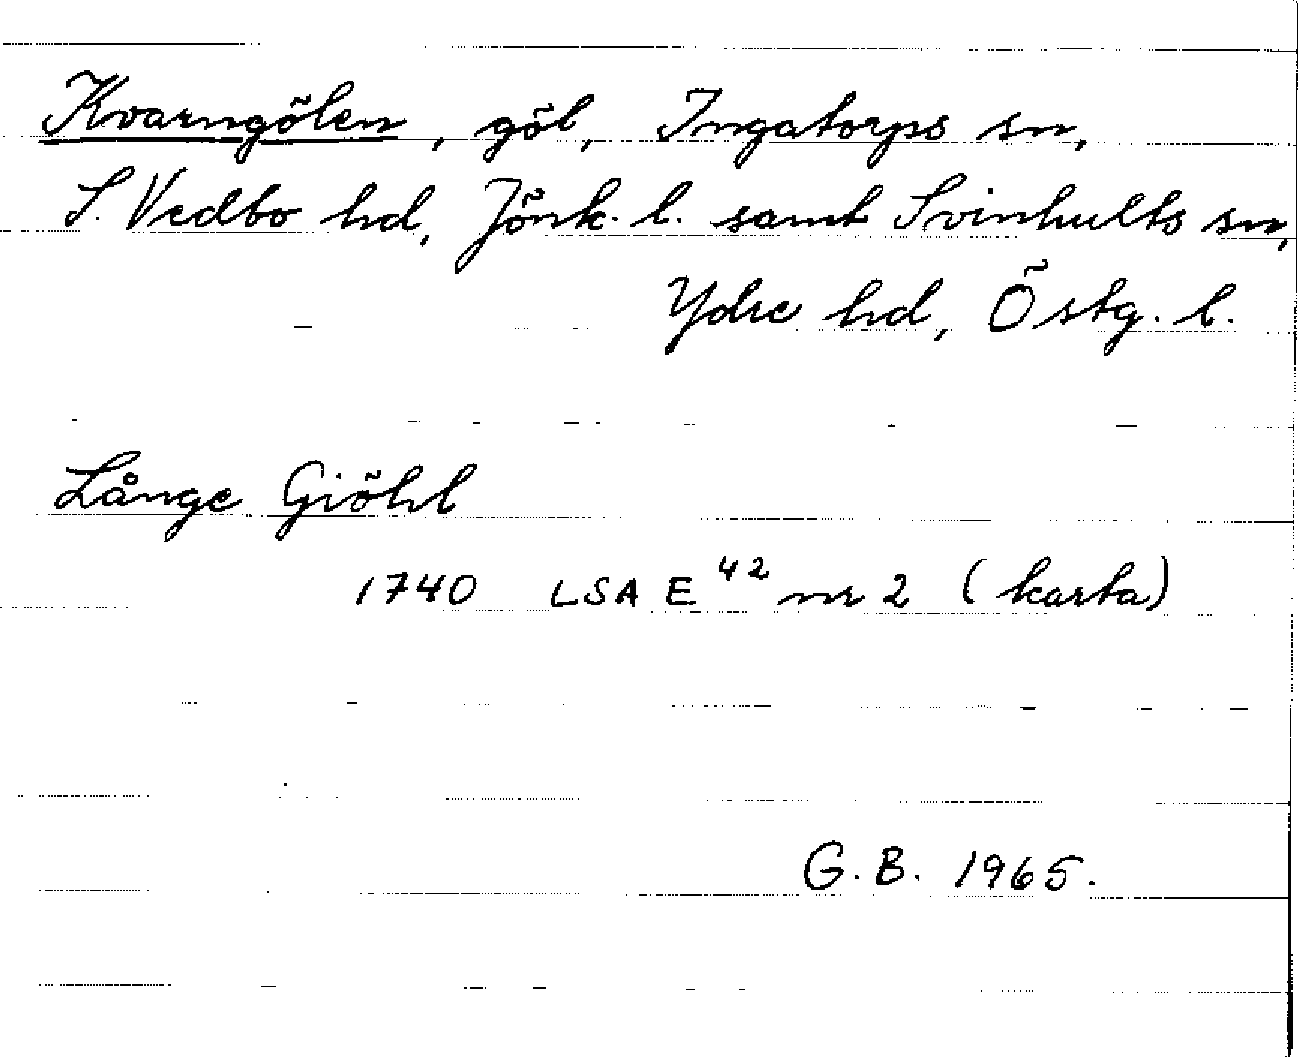 Kvarngölen, göl, Ingatorps sn,
S. Vedbo hd, Jönk. l. samt Svinhults sn,
Ydre hd, Östg. l.
Långe Giöhl
1740 LSA E 42 nr 2 (karta)
G. B. 1965.